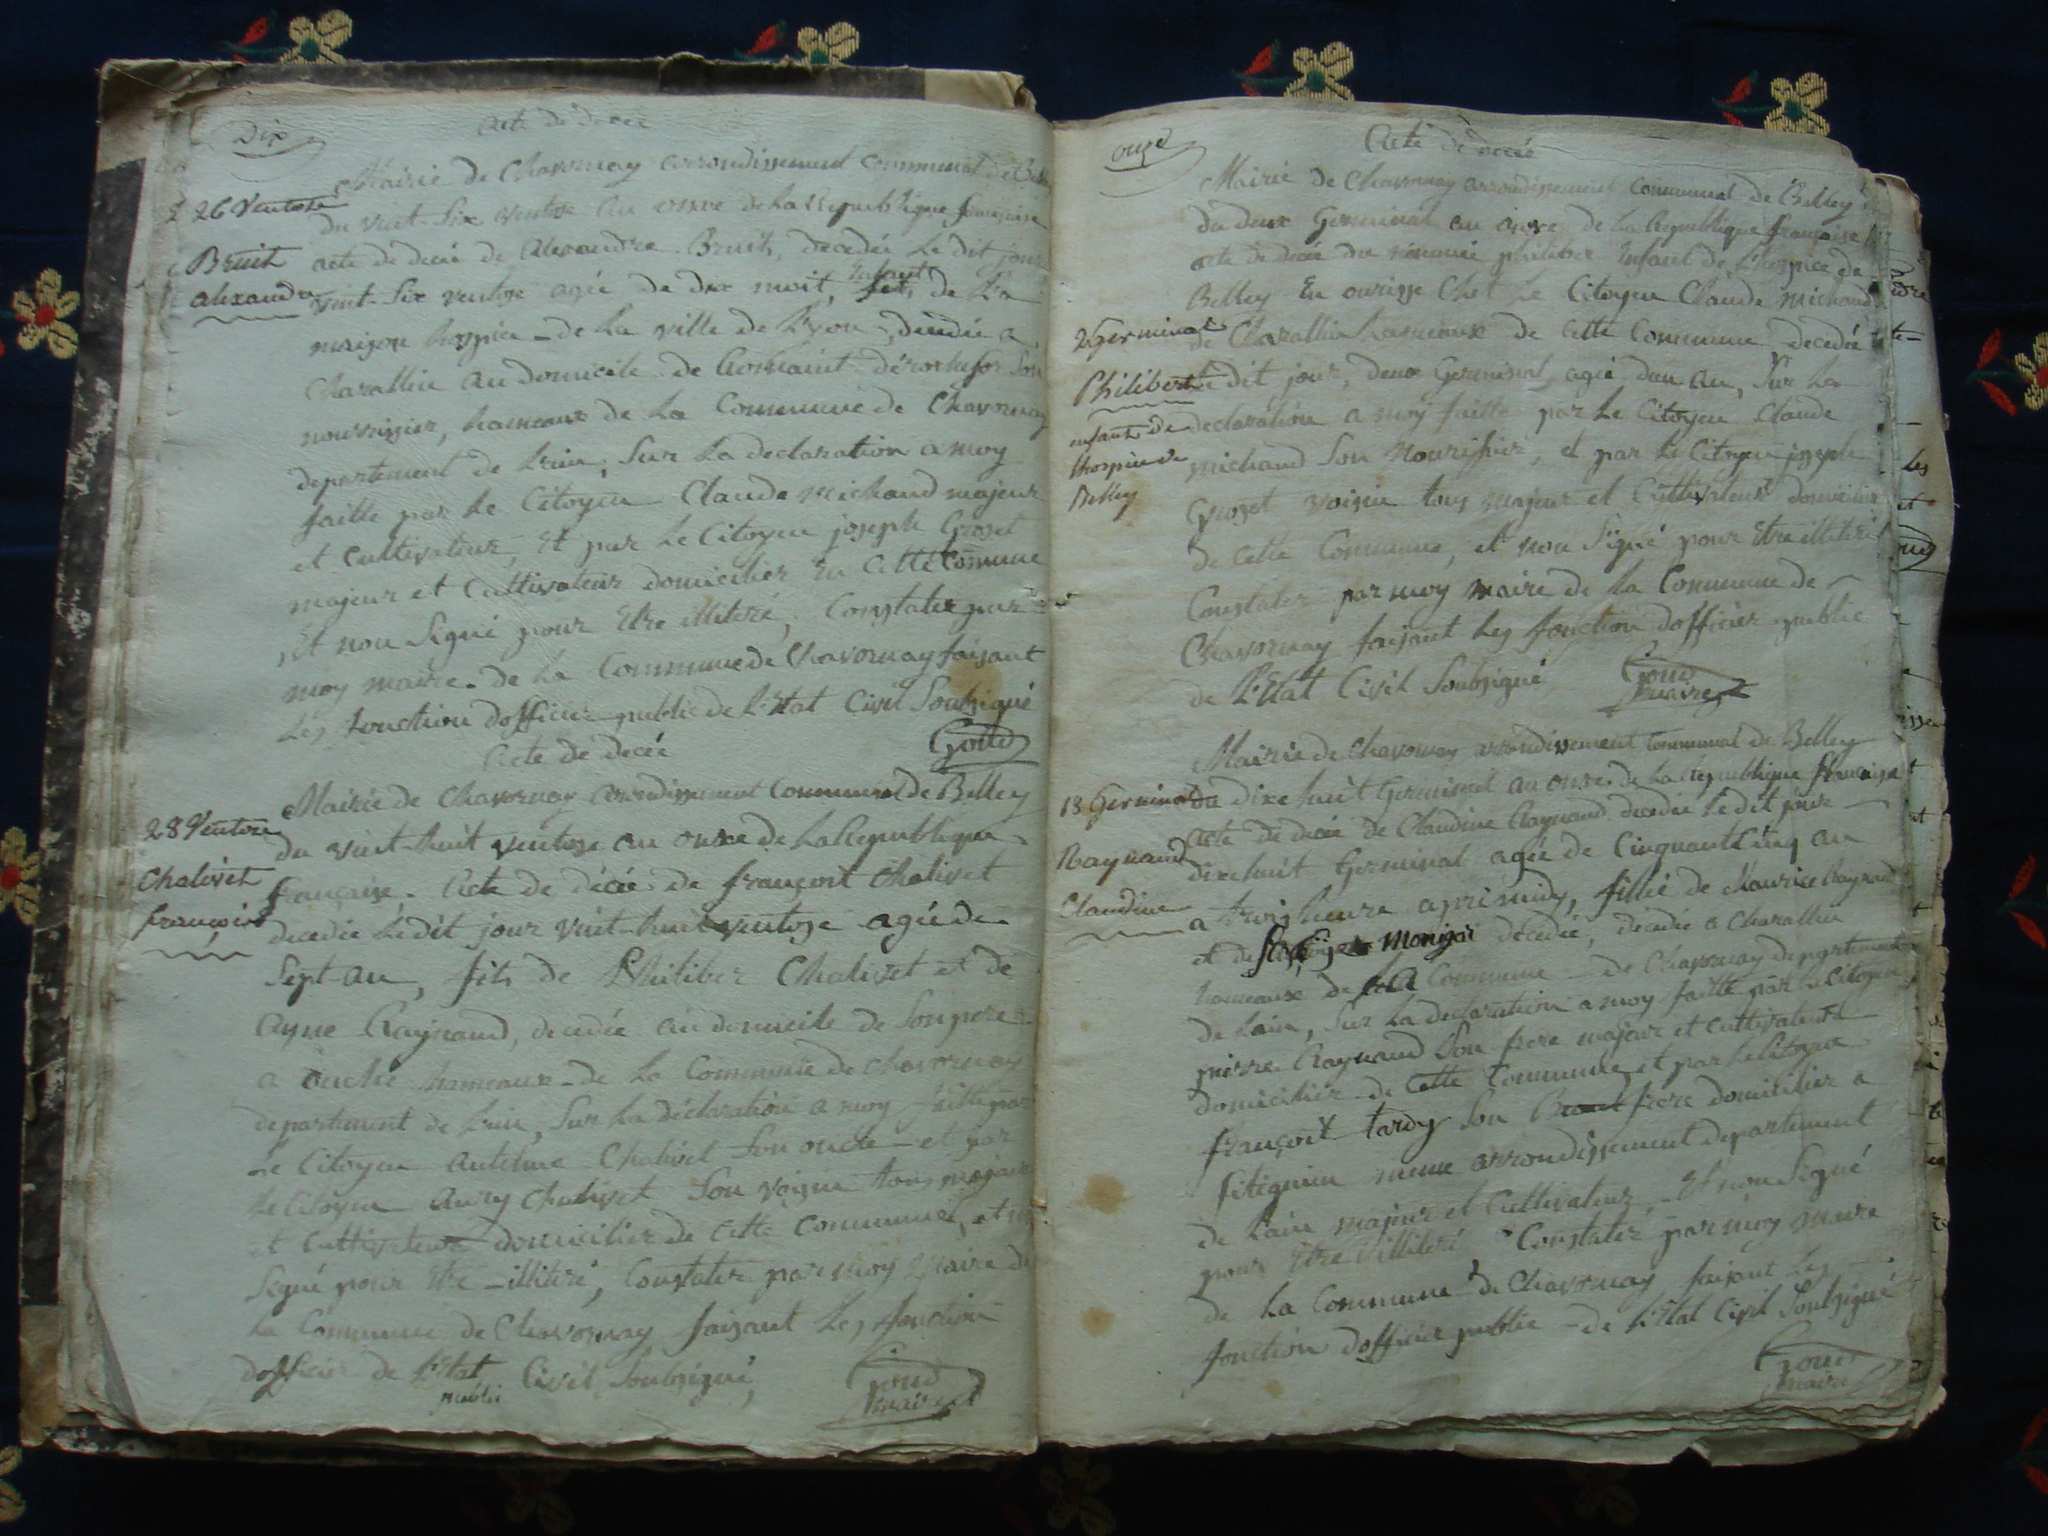 Dix
Acte de décée
26 Ventose
Bruit
alexandre
Mairie de Chavornay arrondissement communal de
du vint-six ventose an onze de la Republique francaise
acte de décé de alexandre Bruit, decedée le dit jour
vint-six ventose agée de dix moit, Infant de la
maison hospice de la ville de Lyon, decedée a
Charallin au domicile de son
nourrissier, hameaux de la Commune de Chavornay
departement de Lain, Sur la declaration a moy
faitte par le Citoyen Claude Michaud majeur
et cultivateur, et par le Citoyen joseph Grozet
majeur et Cultivateur domicilier En Cette Comune
Et non Signé pour Etre illiteré, Constater par
moy maire de la Commune de Chavornay faisant
Les fonction dofficier public de L'Etat Civil Soubsigné
Goud
Acte de decée
28 Ventose
Chalivet
françoit
Mairie de Chavornay arrondissement Communal de Belley
du vint-huit ventose an onze de la Republique
francaise. Acte de décée de françoit Chalivet
decedée le dit jour vint-huit ventose agée de
Sept an, fils de Philiber Chalivet et de
Anne Raynaud, decedée au domicile de Son pere
a ouche hameaux de la Commune de Chavornay
departement de Lain, Sur la déclaration a moy faitte par
Le Citoyen Antelme Chalivet Son oncle et par
le Citoyen Chalivet Son tous majeur
et Cultivateur domicilier de Cette Commune, et non
Signé pour Etre illiteré, Constater par moy Maire de
La Commune de Chavornay faisant Les fonction
dofficier de L'Etat Civil Soubsigné,
public
Goud
maire
onze
Acte de décée
2 Germinal
Philibert
enfant de
lhospice de
Belley
Mairie de Chavornay arrondissement Communal de Belley
du deux Germinal an onze de la Republique francaise
acte de décée du nommé philiber Infant de L'hospice de
Belley En Chet Le Citoyen Claude Michaud
de Charallin hameaux de Cette Commune decedée
le dit jour, deux Germinal, agée dun an, Sur la
declaration a moy faitte par le Citoyen Claude
michaud Son Nourissier, et par le Citoyen joseph
Grozet voisin tous majeur et Cultivateur domicilier
de Cette Commune, et non Signé pour Etre illiteré
Constater par moy maire de la Commune de
Chavornay faisant Les fonction dofficier public
de L'Etat Civil Soubsigné
Goud
maire
18 Germinal
Raynaud
Claudine
Mairie de Chavornay arrondissement Communal de Belley
du dixe huit Germinal an onze de la Republique francaise
acte de décée de Claudine Raynaud decedée le dit jour
dixe huit Germinal agée de Cinquante Cinq an
a trois heure apres midy, fille de Maurice Raynaud
et de Monizir décédée, décedée a Charallin
hameaux de la Commune de Chavornay departement
de Lain, Sur la declaration a moy faitte par le Citoyen
pierre Raynaud Son frere majeur et Cultivateur
domicilier de Cette Commune et par le Citoyen
françoit tardy Son Beaut frere domicilier a
fitignieu meme arrondissement departement
de Lain majeur et Cultivateur, Et non Signé
pour Etre illiteré Constater par moy maire
de La Commune de Chavornay faisant Les
fonction dofficier public de L'Etat Civil Soubsigné
Goud
maire